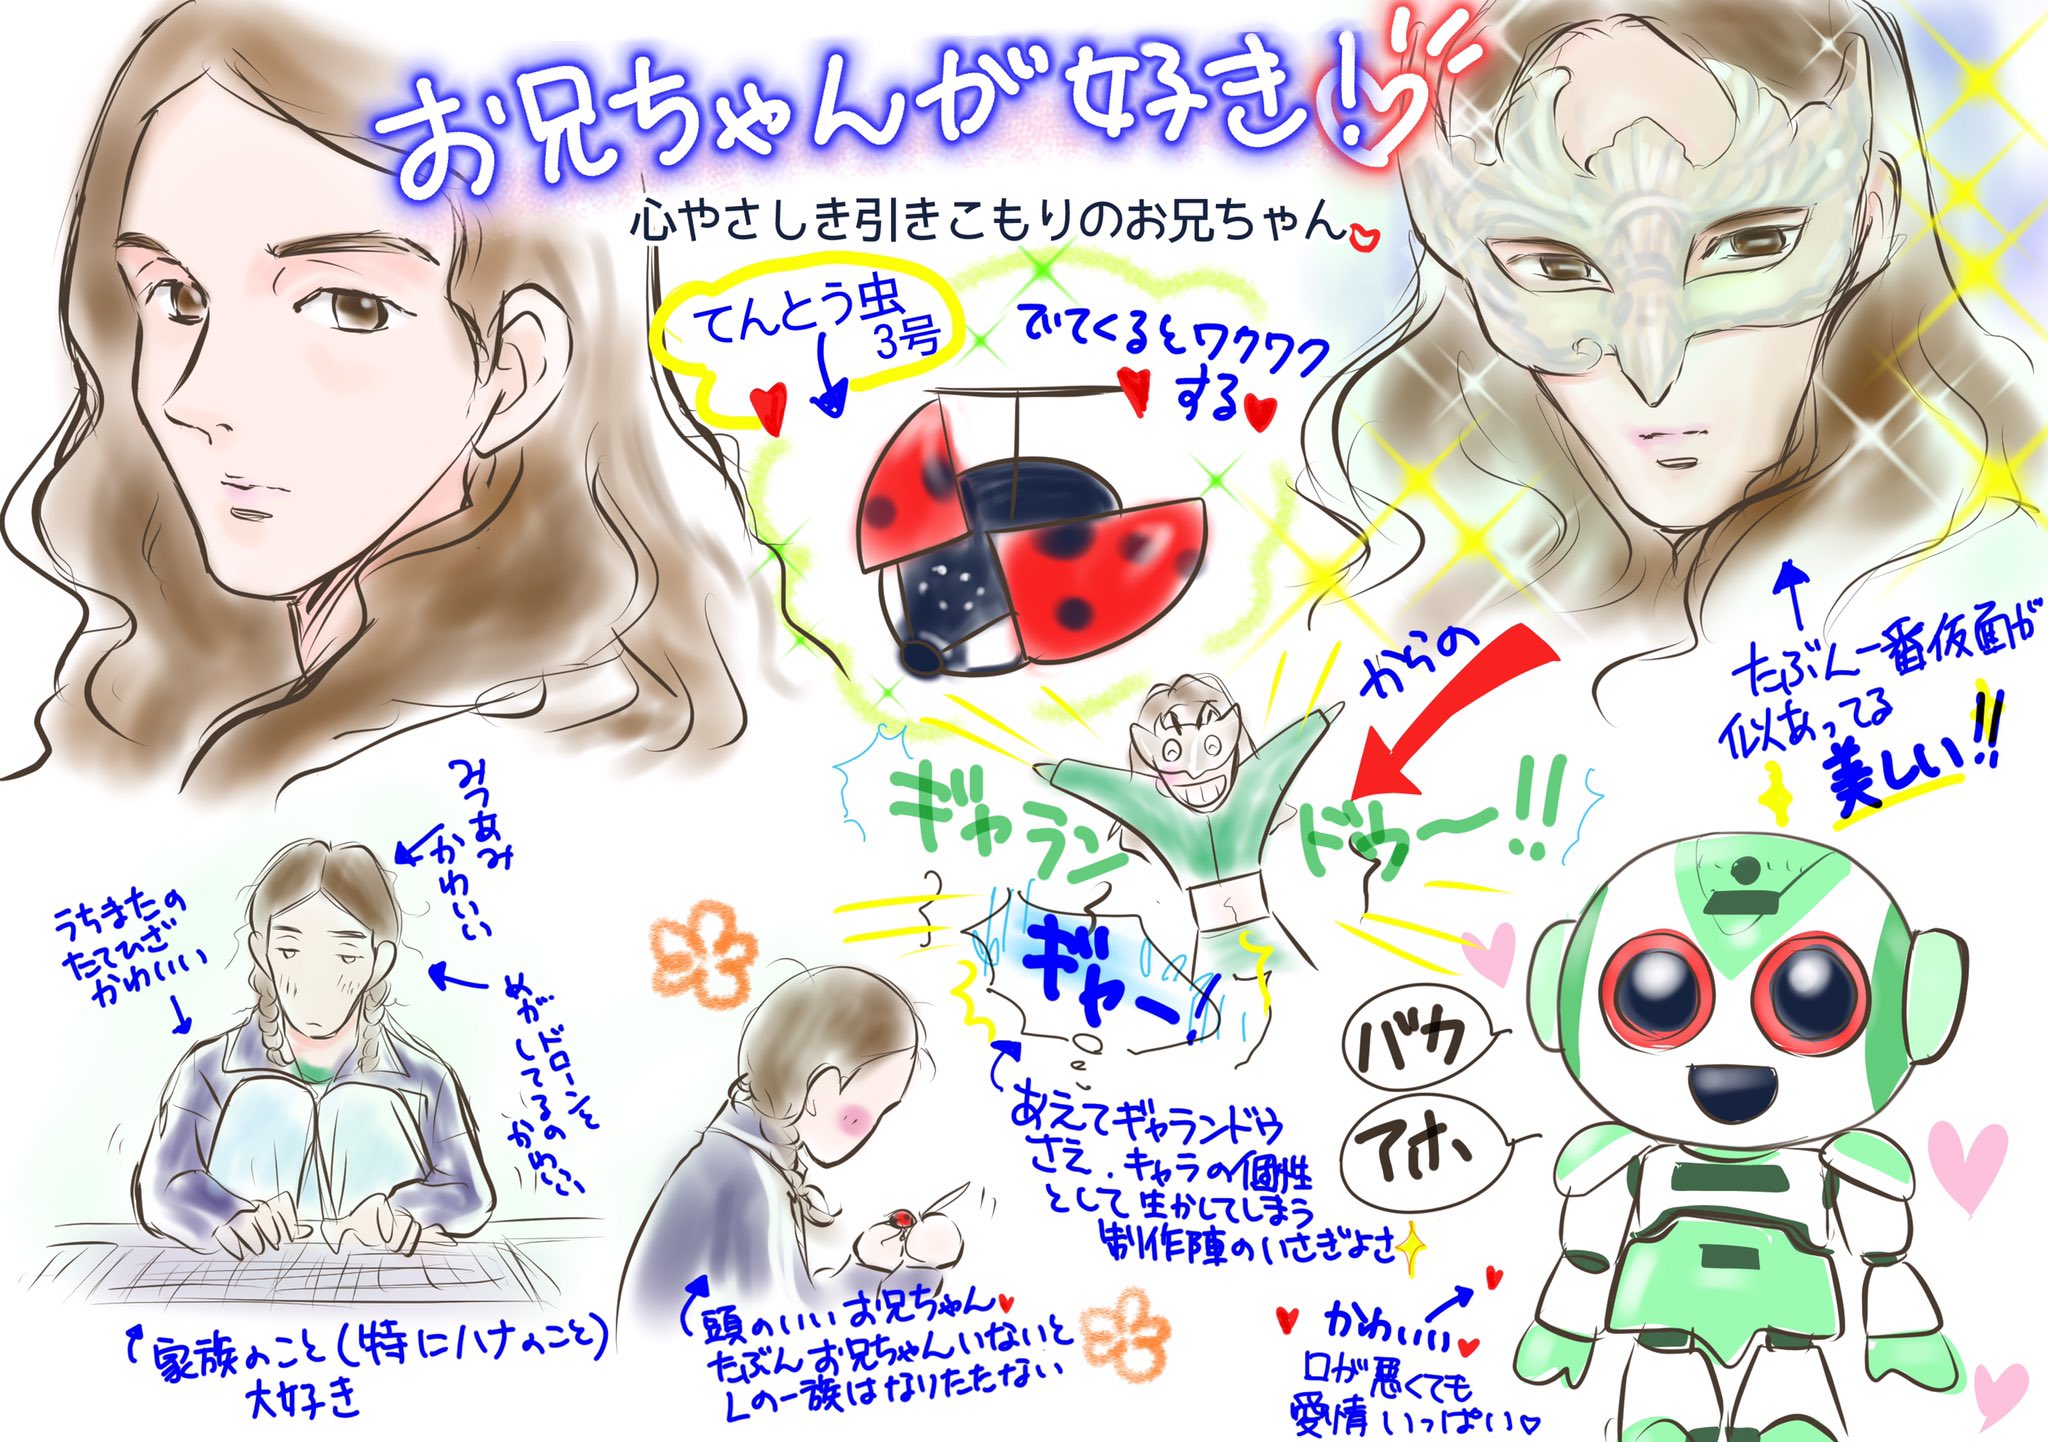 お兄ちゃんが好き!
心やさしき引きこもりのお兄ちゃん
てんとう虫
3号
でてくるとワクワク
する
たぶん一番仮面が
似あってる
美しい!!
からの
ギャランドゥ〜!!
ギャー!
あえてギャランドゥ
さえ、キャラの個性
として生かしてしまう
制作陣のいさぎよさ
みつあみ
かわいい
うちまたの
たてひざ
かわいい
ドローンを
めがしてるの
かわいい
家族のこと(特にハナのこと)
大好き
頭のいいお兄ちゃん
たぶんお兄ちゃんいないと
Lの一族はなりたたない
バカ
アホ
かわいい
口が悪くても
愛情いっぱい